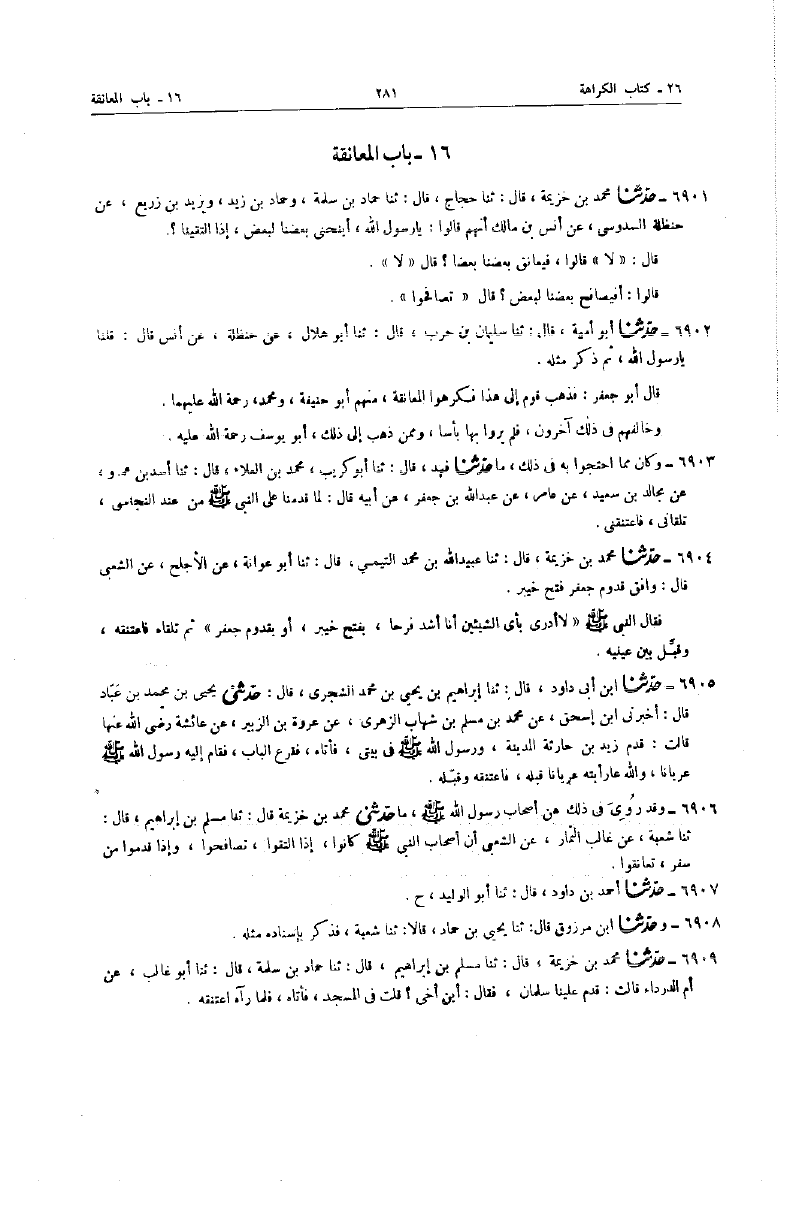 ٢٦ - كتاب الكراهة ٢٨١ ١٦ - باب المعانقة
١٦ - باب المعانقة
٦٩٠١ - حدثنا محمد بن خزيمة ، قال : ثنا حجاج ، قال : ثنا حماد بن سلمة ، وحماد بن زيد ، ويزيد بن زريع ، عن
حنظلة السدوسى ، عن أنس بن مالك أنهم قالوا : يارسول الله ، أينحنى بعضنا لبعض ، إذا التقينا ؟.
قال : « لا » قالوا ، فيعانق بعضنا بعضا ؟ قال « لا » .
قالوا : أفيصافح بعضنا لبعض ؟ قال « تصافحوا » .
٦٩٠٢ - حدثنا أبو أمية ، قال : ثنا سليمان بن حرب ، قال : ثنا أبو هلال ، عن حنظلة ، عن أنس قال : قلنا
يارسول الله ، ثم ذكر مثله .
قال أبو جعفر : فذهب قوم إلى هذا فكرهوا المعانقة ، منهم أبو حنيفة ، ومحمد، رحمة الله عليهما .
وخالفهم فى ذلك آخرون ، فلم يروا بها بأسا ، وممن ذهب إلى ذلك ، أبو يوسف رحمة الله عليه .
٦٩٠٣ - وكان مما احتجوا به فى ذلك ، ما حدثنا فهد ، قال : ثنا أبو كريب ، محمد بن العلاء ، قال : ثنا أسد بن عمرو ،
عن مجالد بن سعيد ، عن عامر ، عن عبدالله بن جعفر ، عن أبيه قال : لما قدمنا على النبى ﷺ من عند النجاشى ،
تلقانى ، فاعتنقنى .
٦٩٠٤ - حدثنا محمد بن خزيمة ، قال : ثنا عبيدالله بن محمد التيمى ، قال : ثنا أبو عوانة ، عن الأجلح ، عن الشعبى
قال : وافق قدوم جعفر فتح خيبر .
فقال النبى ﷺ « لاأدرى بأى الشيئين أنا أشد فرحا ، بفتح خيبر ، أو بقدوم جعفر » ثم تلقاه فاعتنقه ،
وقبَّل بين عينيه .
٦٩٠٥ - حدثنا ابن أبى داود ، قال : ثنا إبراهيم بن يحيى بن محمد الشجرى ، قال : حدثنى يحيى بن محمد بن عَبَّاد
قال : أخبرنى ابن إسحق ، عن محمد بن مسلم بن شهاب الزهرى ، عن عروة بن الزبير ، عن عائشة رضى الله عنها
قالت : قدم زيد بن حارثة المدينة ، ورسول الله ﷺ فى بيتى ، فأتاه ، فقرع الباب ، فقام إليه رسول الله ﷺ
عريانا ، والله مارأيته عريانا قبله ، فاعتنقه وقبّله .
٦٩٠٦ - وقد رُوِىَ فى ذلك عن أصحاب رسول الله ﷺ ، ما حدثنى محمد بن خزيمة قال : ثنا مسلم بن إبراهيم ، قال :
ثنا شعبة ، عن غالب التمَّار ، عن الشعبى أن أصحاب النبى ﷺ كانوا ، إذا التقوا ، تصافحوا ، وإذا قدموا من
سفر ، تعانقوا .
٦٩٠٧ - حدثنا أحمد بن داود ، قال : ثنا أبو الوليد ، ح .
٦٩٠٨ - وحدثنا ابن مرزوق قال: ثنا يحيى بن حماد ، قالا: ثنا شعبة ، فذكر بإسناده مثله .
٦٩٠٩ - حدثنا محمد بن خزيمة ، قال : ثنا مسلم بن إبراهيم ، قال : ثنا حماد بن سلمة ، قال : ثنا أبو غالب ، عن
أم الدرداء قالت : قدم علينا سلمان ، فقال : أين أخى ؟ قلت فى المسجد ، فأتاه ، فلما رآه اعتنقه .